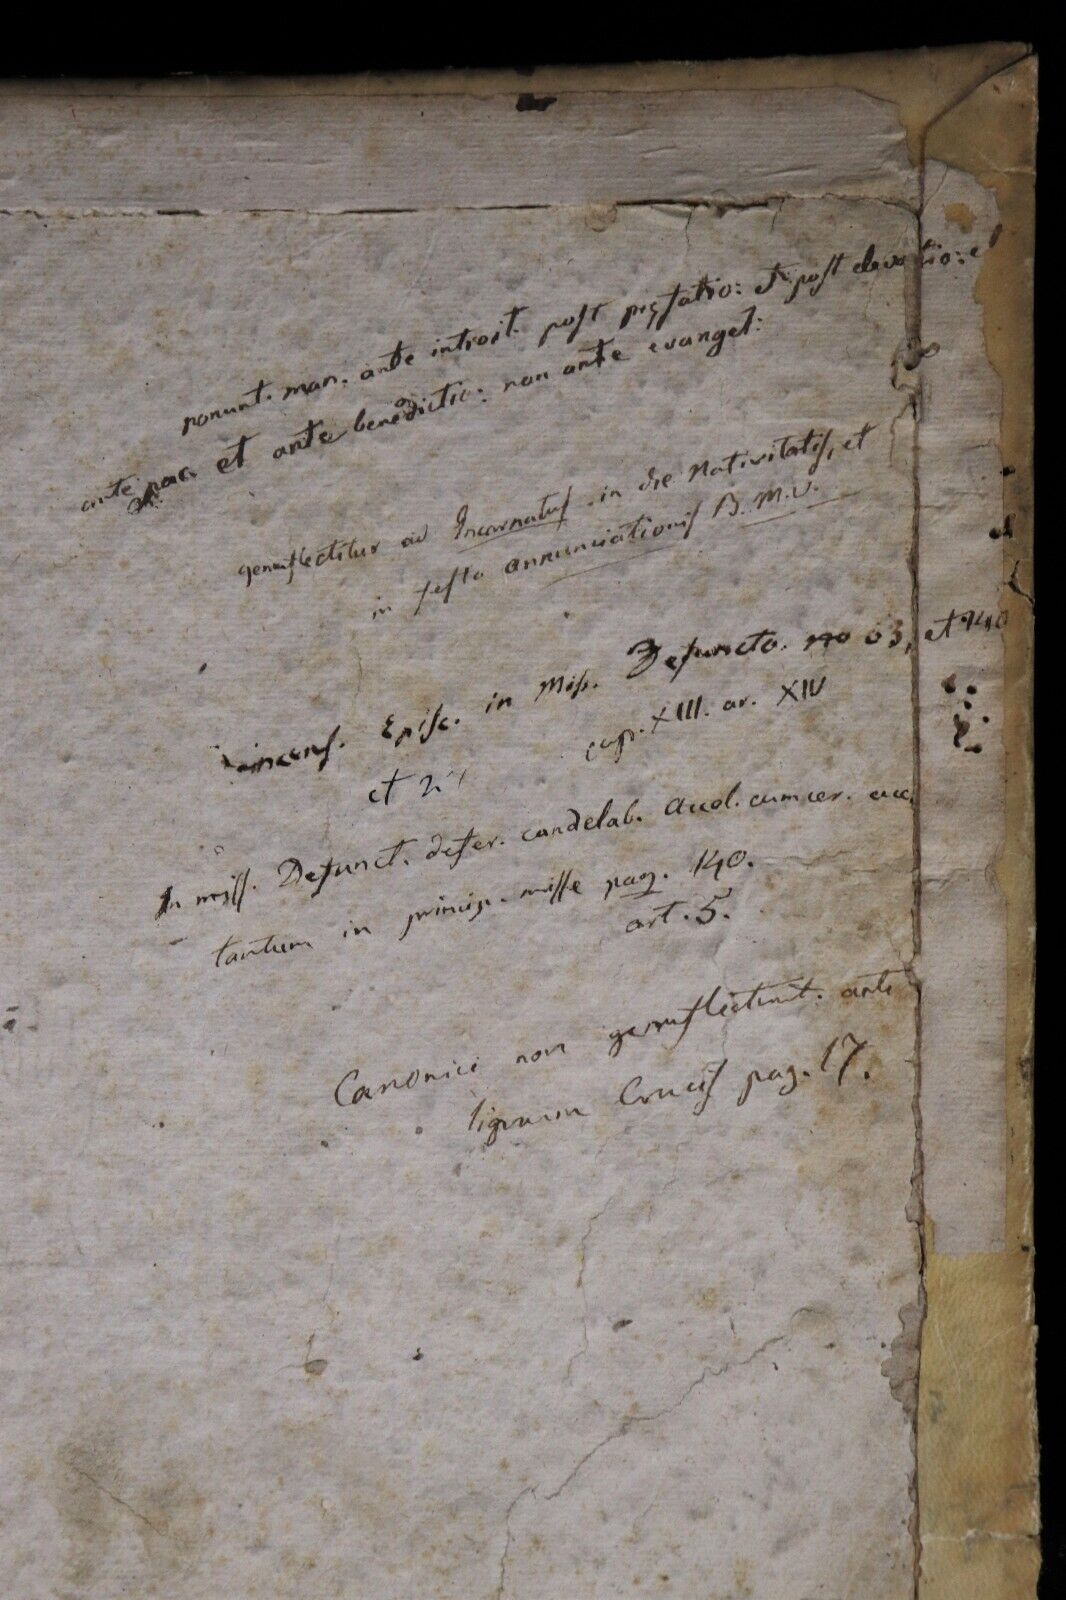 ponunt. man. ante introit. post
ante et ante benedictio: non ante evangel:
genuflectitur ad Incarnatus in die Nativitatis, et
in festo annunciationis B. M. V.
incens. Episc. in Miss. Defuncto. 63, et 140
et cap. XIII. ar. XIV
In miss. Defunct. defer. candelab. Acol. cum cer. acc.
tantum in princip. misse pag. 140.
art. 5.
Canonici non genuflectunt. ante
lignum Crucis pag. 17.